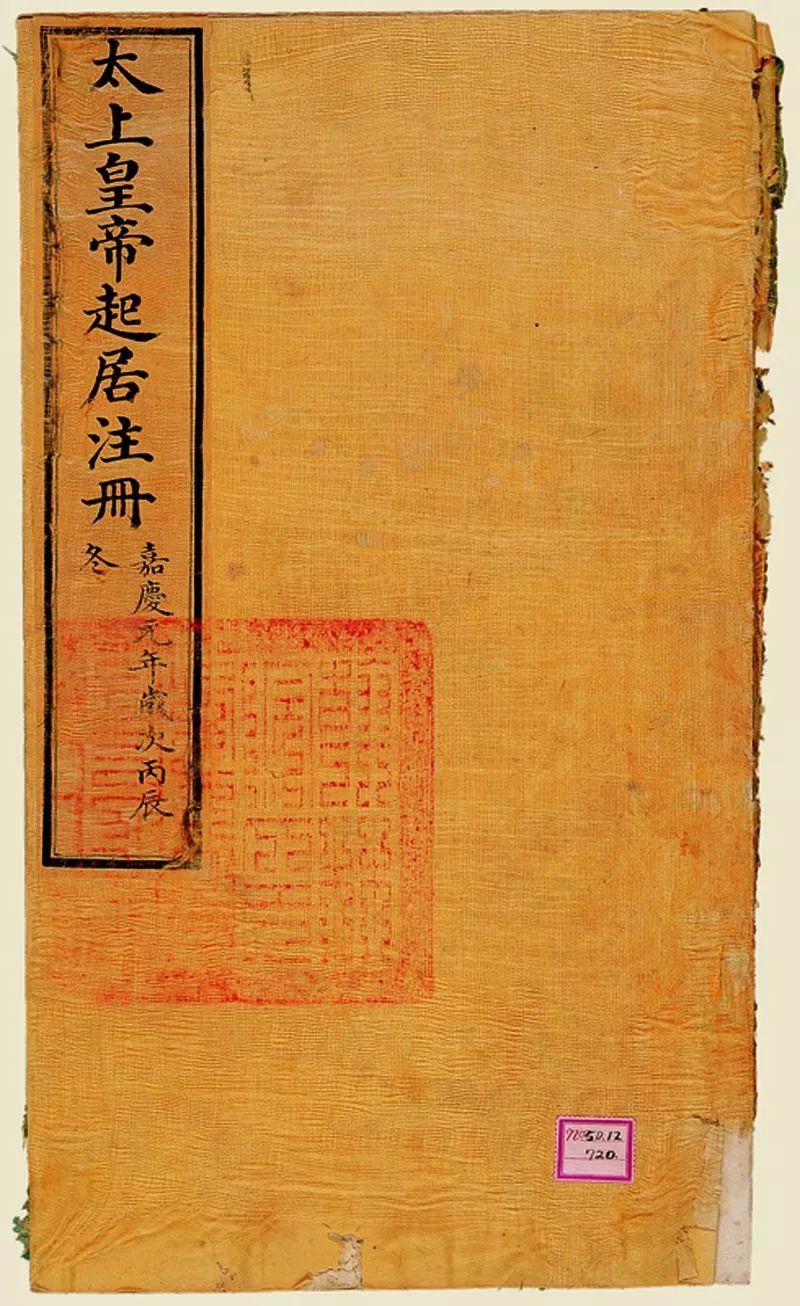 太上皇帝起居注冊
嘉慶元年歲次丙辰
冬
50.12
720.